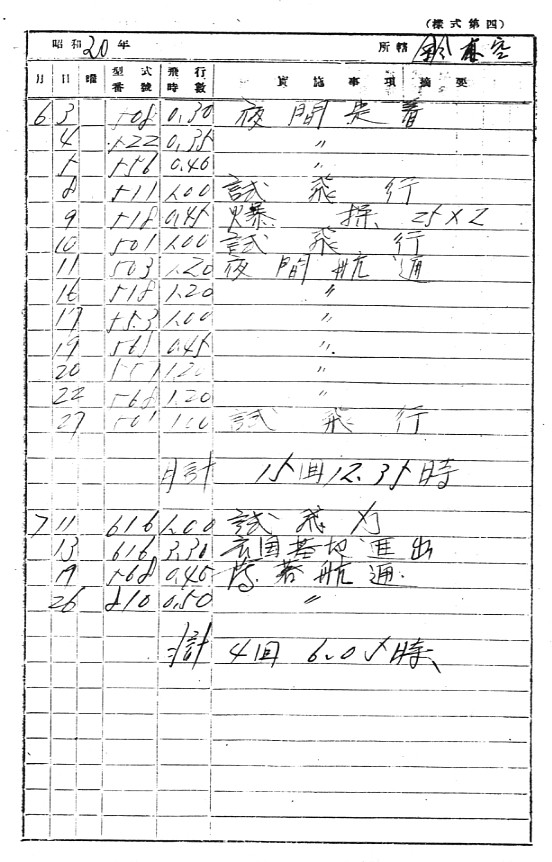 (樣式第四)
昭和20年 所轄 空
月 日 曜 型式番號 飛行時數 實施事項摘要
6 3 508 0.30 夜間離着
4 522 0.35 〃
5 556 0.40 〃
8 511 1.00 試飛行
9 518 0.45 爆操 25×2
10 501 1.00 試飛行
11 503 1.20 夜間航通
16 518 1.20 〃
17 553 1.00 〃
19 565 0.45 〃
20 1.20 〃
22 568 1.20 〃
27 501 1.00 試飛行
月計 15回 12.35時
7 11 616 1.00 試飛行
13 616 3.30 基地進出
19 568 0.45 航通
26 810 0.50 〃
計 4回 6.05時